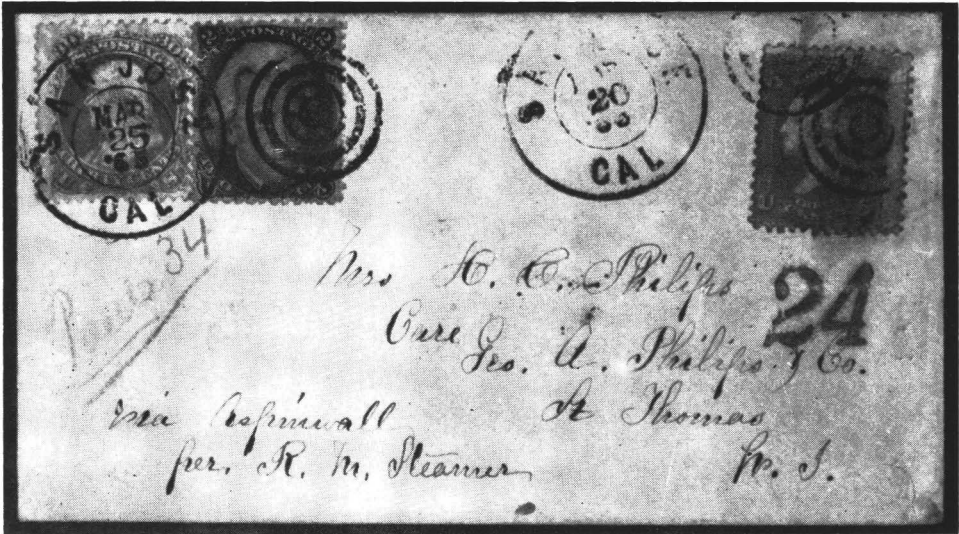 SAN JOSE
MAR
25
'68
CAL
20
CAL
34
24
Mrs H. C. Philips
Care
Geo. A. Philips & Co.
St Thomas
W. I.
via Aspinwall
per. R. M. Steamer